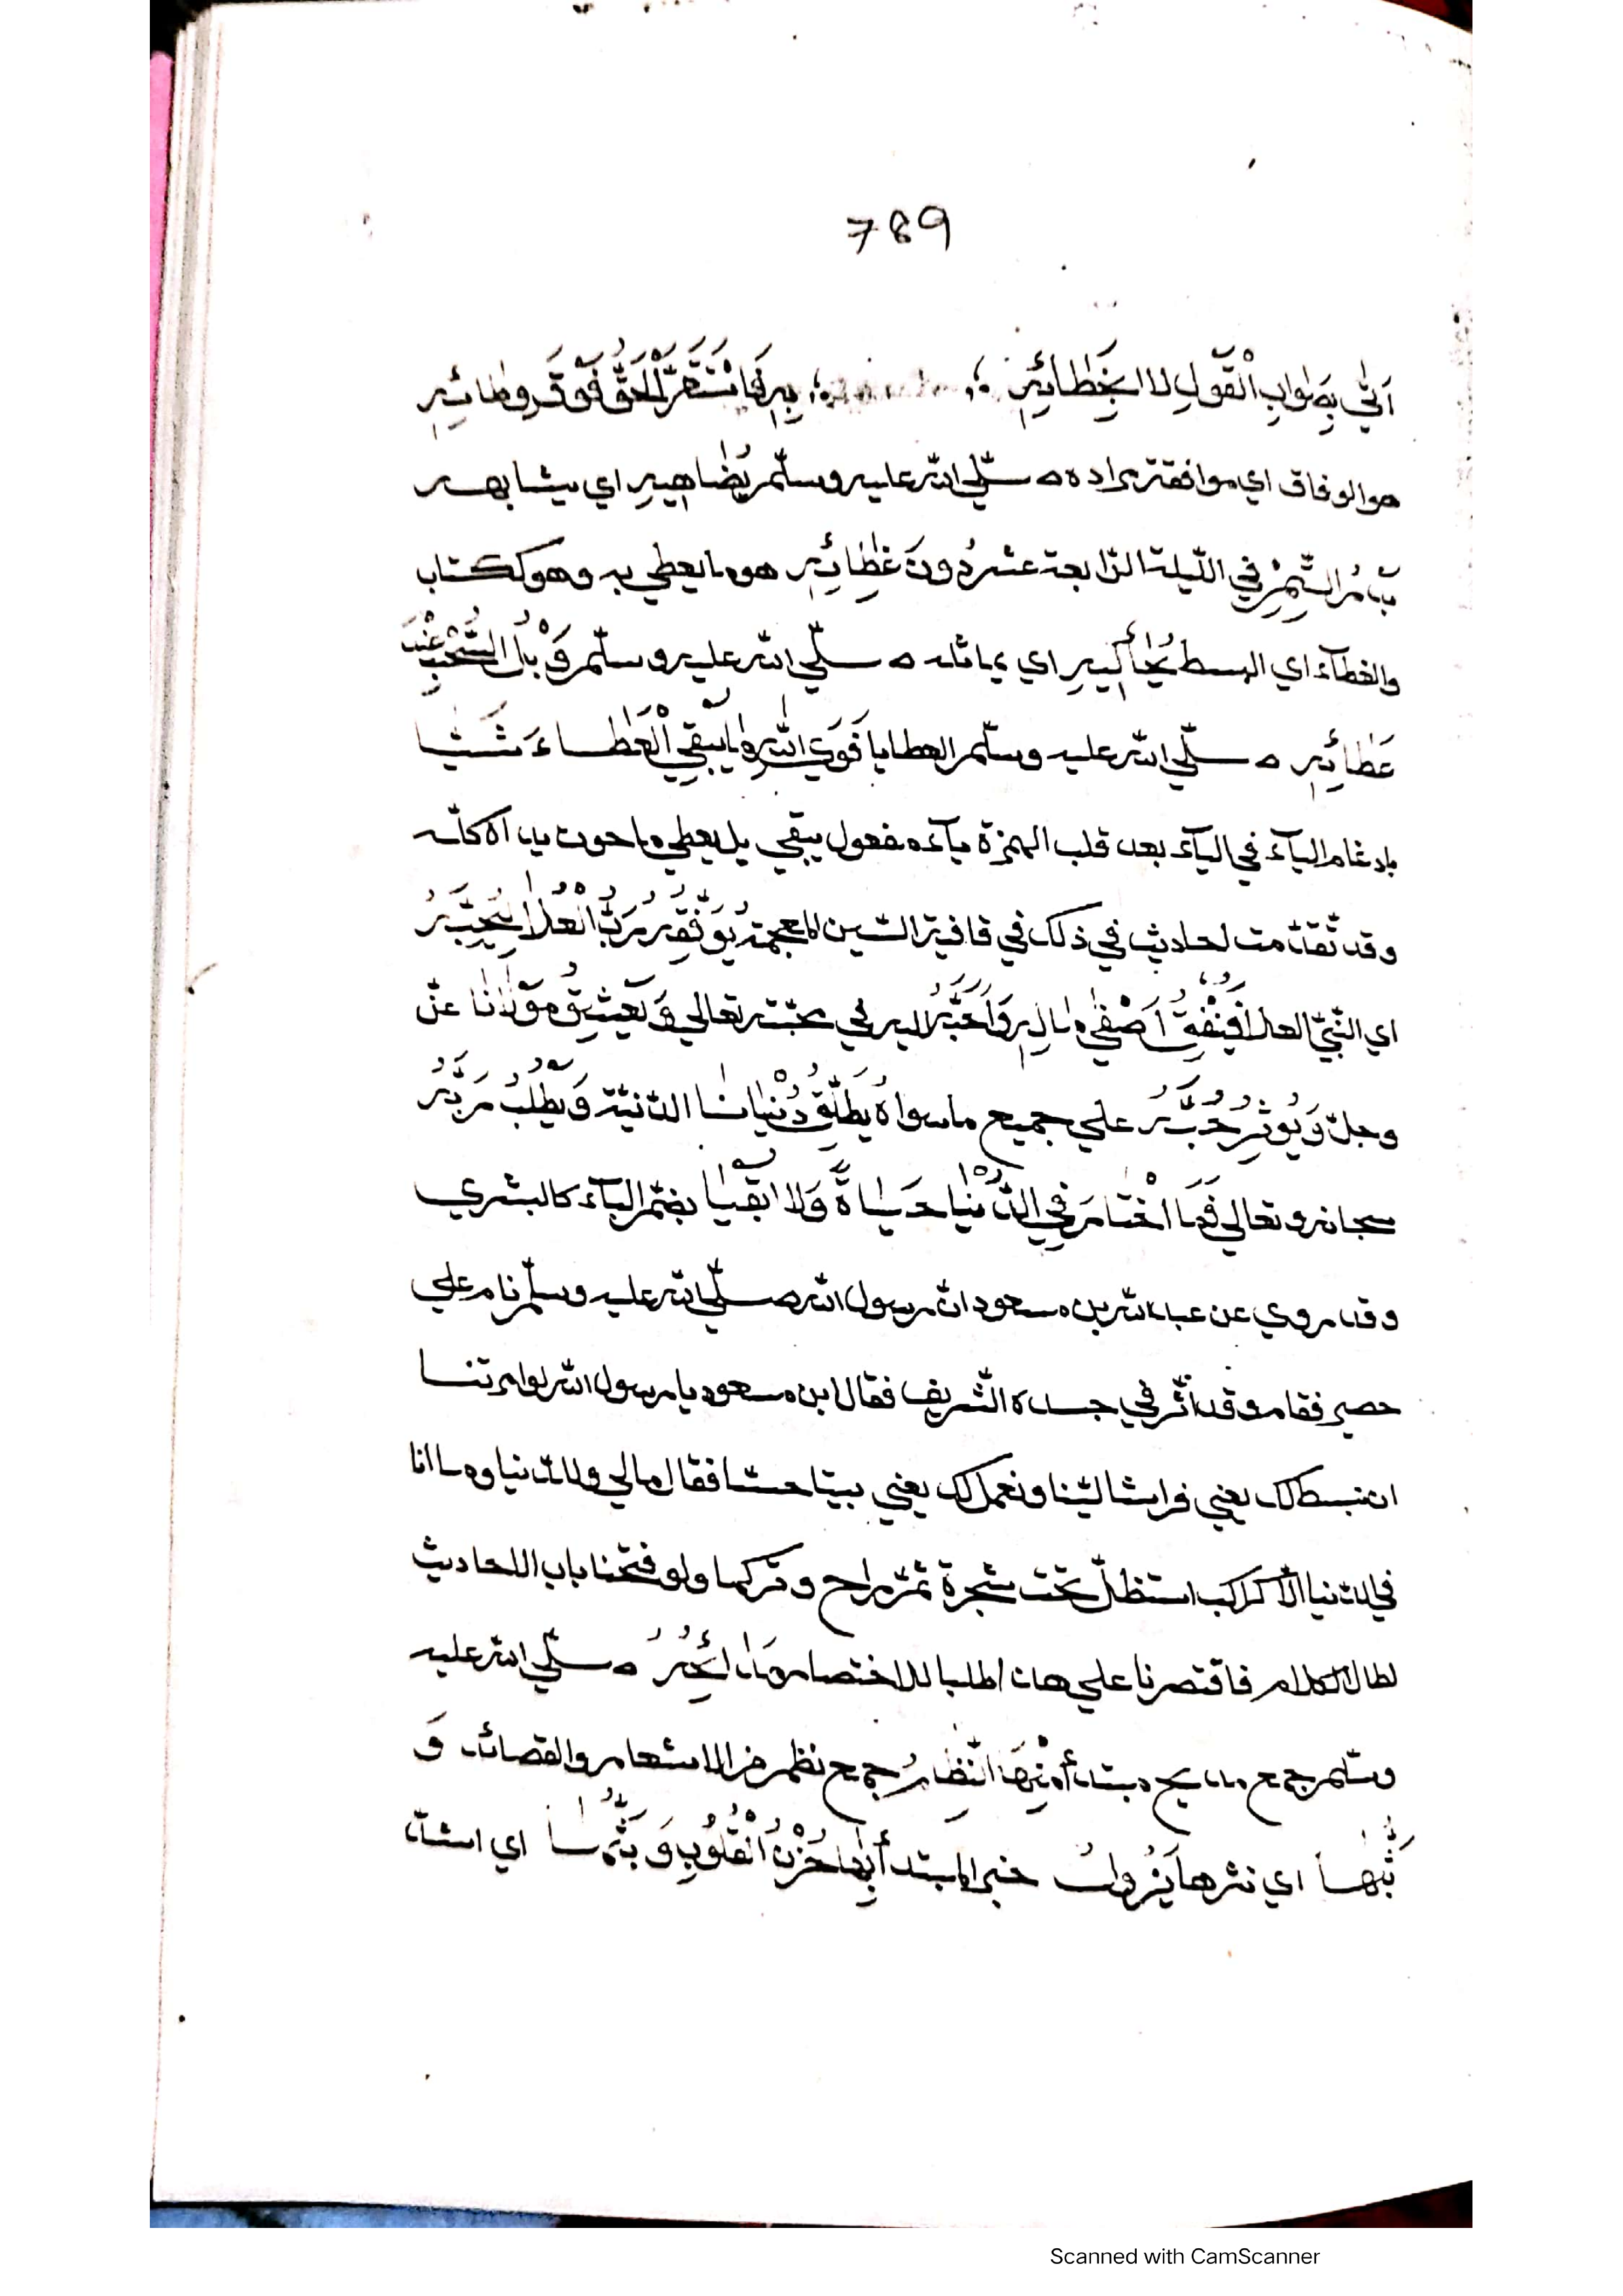 789
اَتٰى بِصَوَابِ الْقَوْلِ لَا بِخَطَائِهِ ؛ ؛ بِهِ فَاسْتَقَرَّ الْحَقُّ فَوْقَ وِطَائِهِ
هو الوفاق اي موافقته مراده صلّي الله عليه وسلّم يُضَاهِيهِ اي يشابهه
بَدْرُ السَّمَا في اللّيلة الرّابعة عشر دُونَ غِطَائِهِ هو ما يغطي به وهو ككتاب
والغطآء اي البسط يُحَاكِيهِ اي يماثله صلّي الله عليه وسلّم وَبْلُ السُّحْبِ عِنْدَ
عَطَائِهِ صلّي الله عليه وسلّم العطايا فَوَاللّٰهِ مَا يُبْقِي الْعَطَاءَ شَيَّا
بادغام اليآء في اليآء بعد قلب الهمزة يآء مفعول يبقي بل يعطي ما حوت يداه كلّه
وقد تقدّمت لحاديث في ذلك في قافية الشين المعجمة يُوَفِّقُهُ رَبُّ الْعُلَا لِيُحِبَّهُ
اي النّبيّ العلا فَيُنْفِقُ اَصْفٰى مَالِهِ وَاَحَبَّهُ اليه في محبّته تعالي وَيَعْشِقُ مَوْلَانَا عزّ
وجلّ وَيُوثِرُ حُبَّهُ علي جميع ما سواه يُطَلِّقُ دُنْيَانَا الدّنيّة وَيَطْلُبُ رَبَّهُ
سبحانه وتعالي فَمَا اخْتَارَ فِي الدُّنْيَا حَيَاةً وَلَا بُقْيَا بضمّ البآء كالبشري
وقد روي عن عبد الله بن مسعود انّ رسول الله صلّي الله عليه وسلّم نام علي
حصير فقام وقد اثّر في جسده الشّريف فقال ابن مسعود يا رسول الله لو امرتنا
ان نبسط لك يعني فراشا ليّنا ونعمل لك يعني بيتا حسنا فقال مالي وللدّنيا وما انا
في الدّنيا الّا كراكب استظلّ تحت شجرة ثمّ راح وتركها ولو فتحنا باب اللحاديث
لطال الكلام فاقتصرنا علي هذا طلبا للاختصار مَدَائِحُهُ صلّي الله عليه
وسلّم جمع مديح مبتدأ مِنْهَا النِّظَامُ جمع نظم من الاشعار والقصائد وَ
نَثْرُهَا اي نثرها يَزُولُ خبر المبتدأ بِهَا حُزْنُ الْقُلُوبِ وَبَثُّهَا اي اشدّ